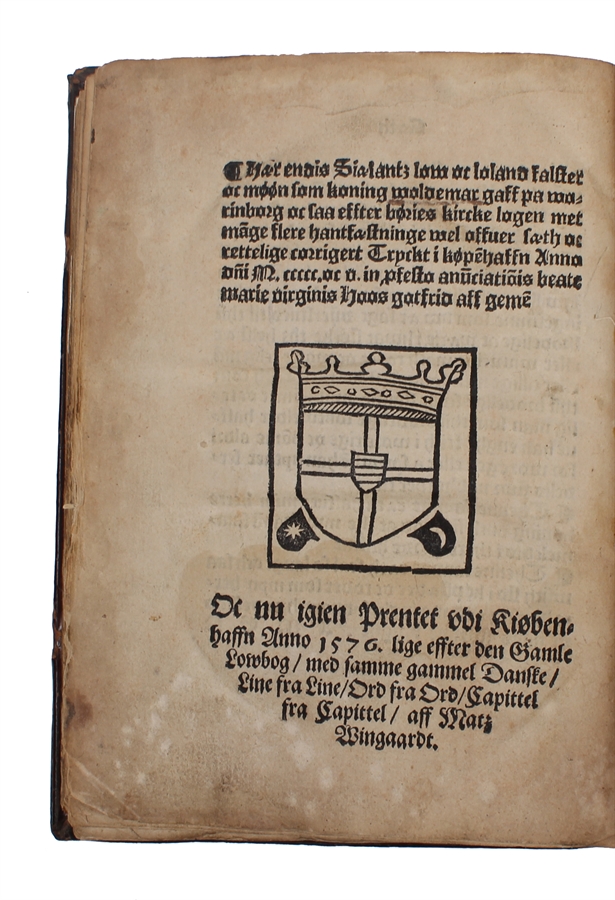 ¶ Hær endis Siælantz low oc loland falster
oc møøn som koning woldemar gaff pa wo⸗
rinborg oc saa effter børies kircke logen met
mãge flere hantfæstninge wel offuer sæth oc
rettelige corrigert Tryckt i køpẽhaffn Anno
dñi M. ccccc. oc v. in ꝓfesto anũciatiõis beate
marie virginis Hoos gotfrid aff gemẽ
Oc nu igien Prentet vdi Kiøben⸗
haffn Anno 1576. lige effter den Gamle
Lowbog / med samme gammel Danske /
Line fra Line/Ord fra Ord/Capittel
fra Capittel / aff Matz
Wingaardt.